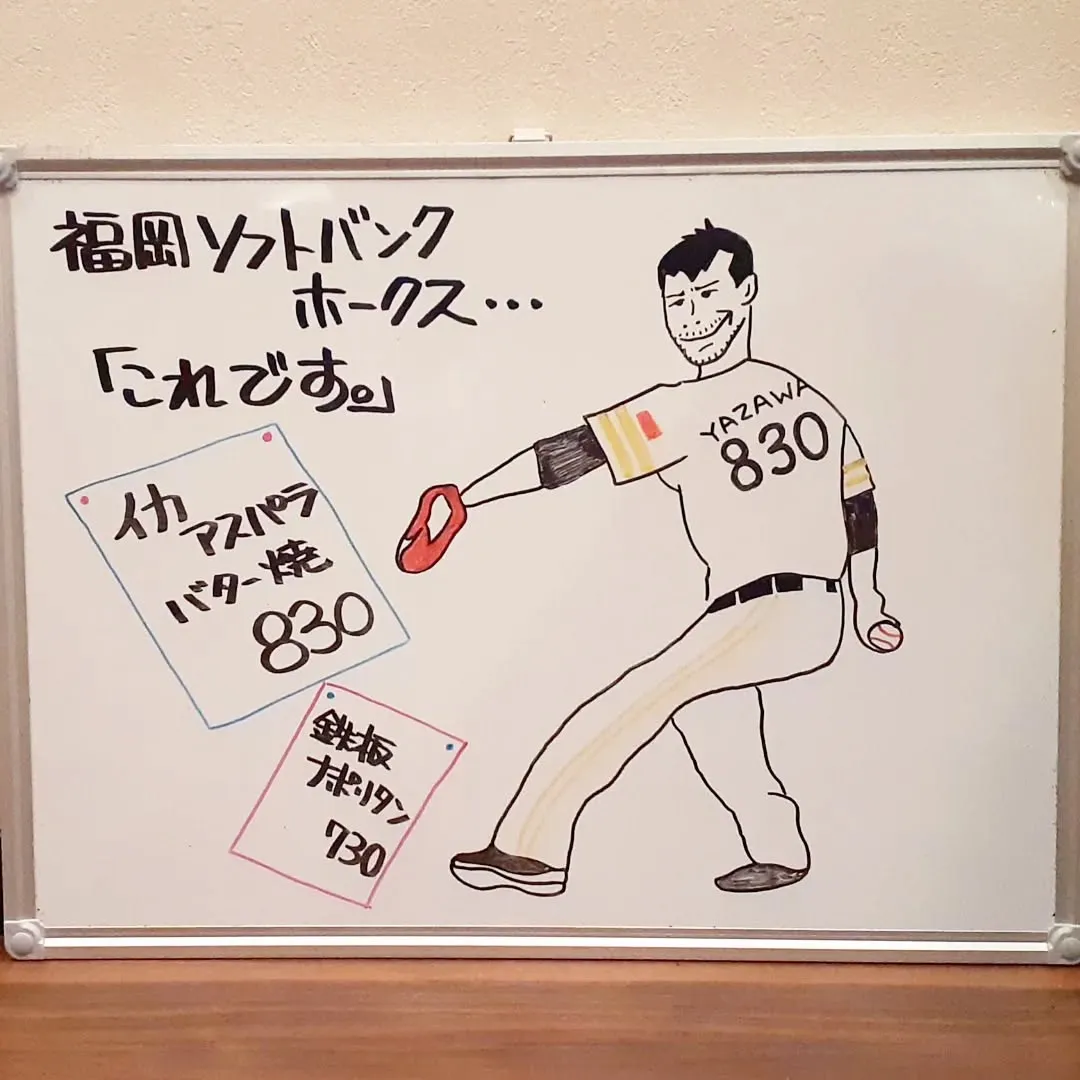 福岡ソフトバンク
ホークス…
「これです。」
イカ
アスパラ
バター焼
830
鉄板
ナポリタン
730
YAZAWA
830